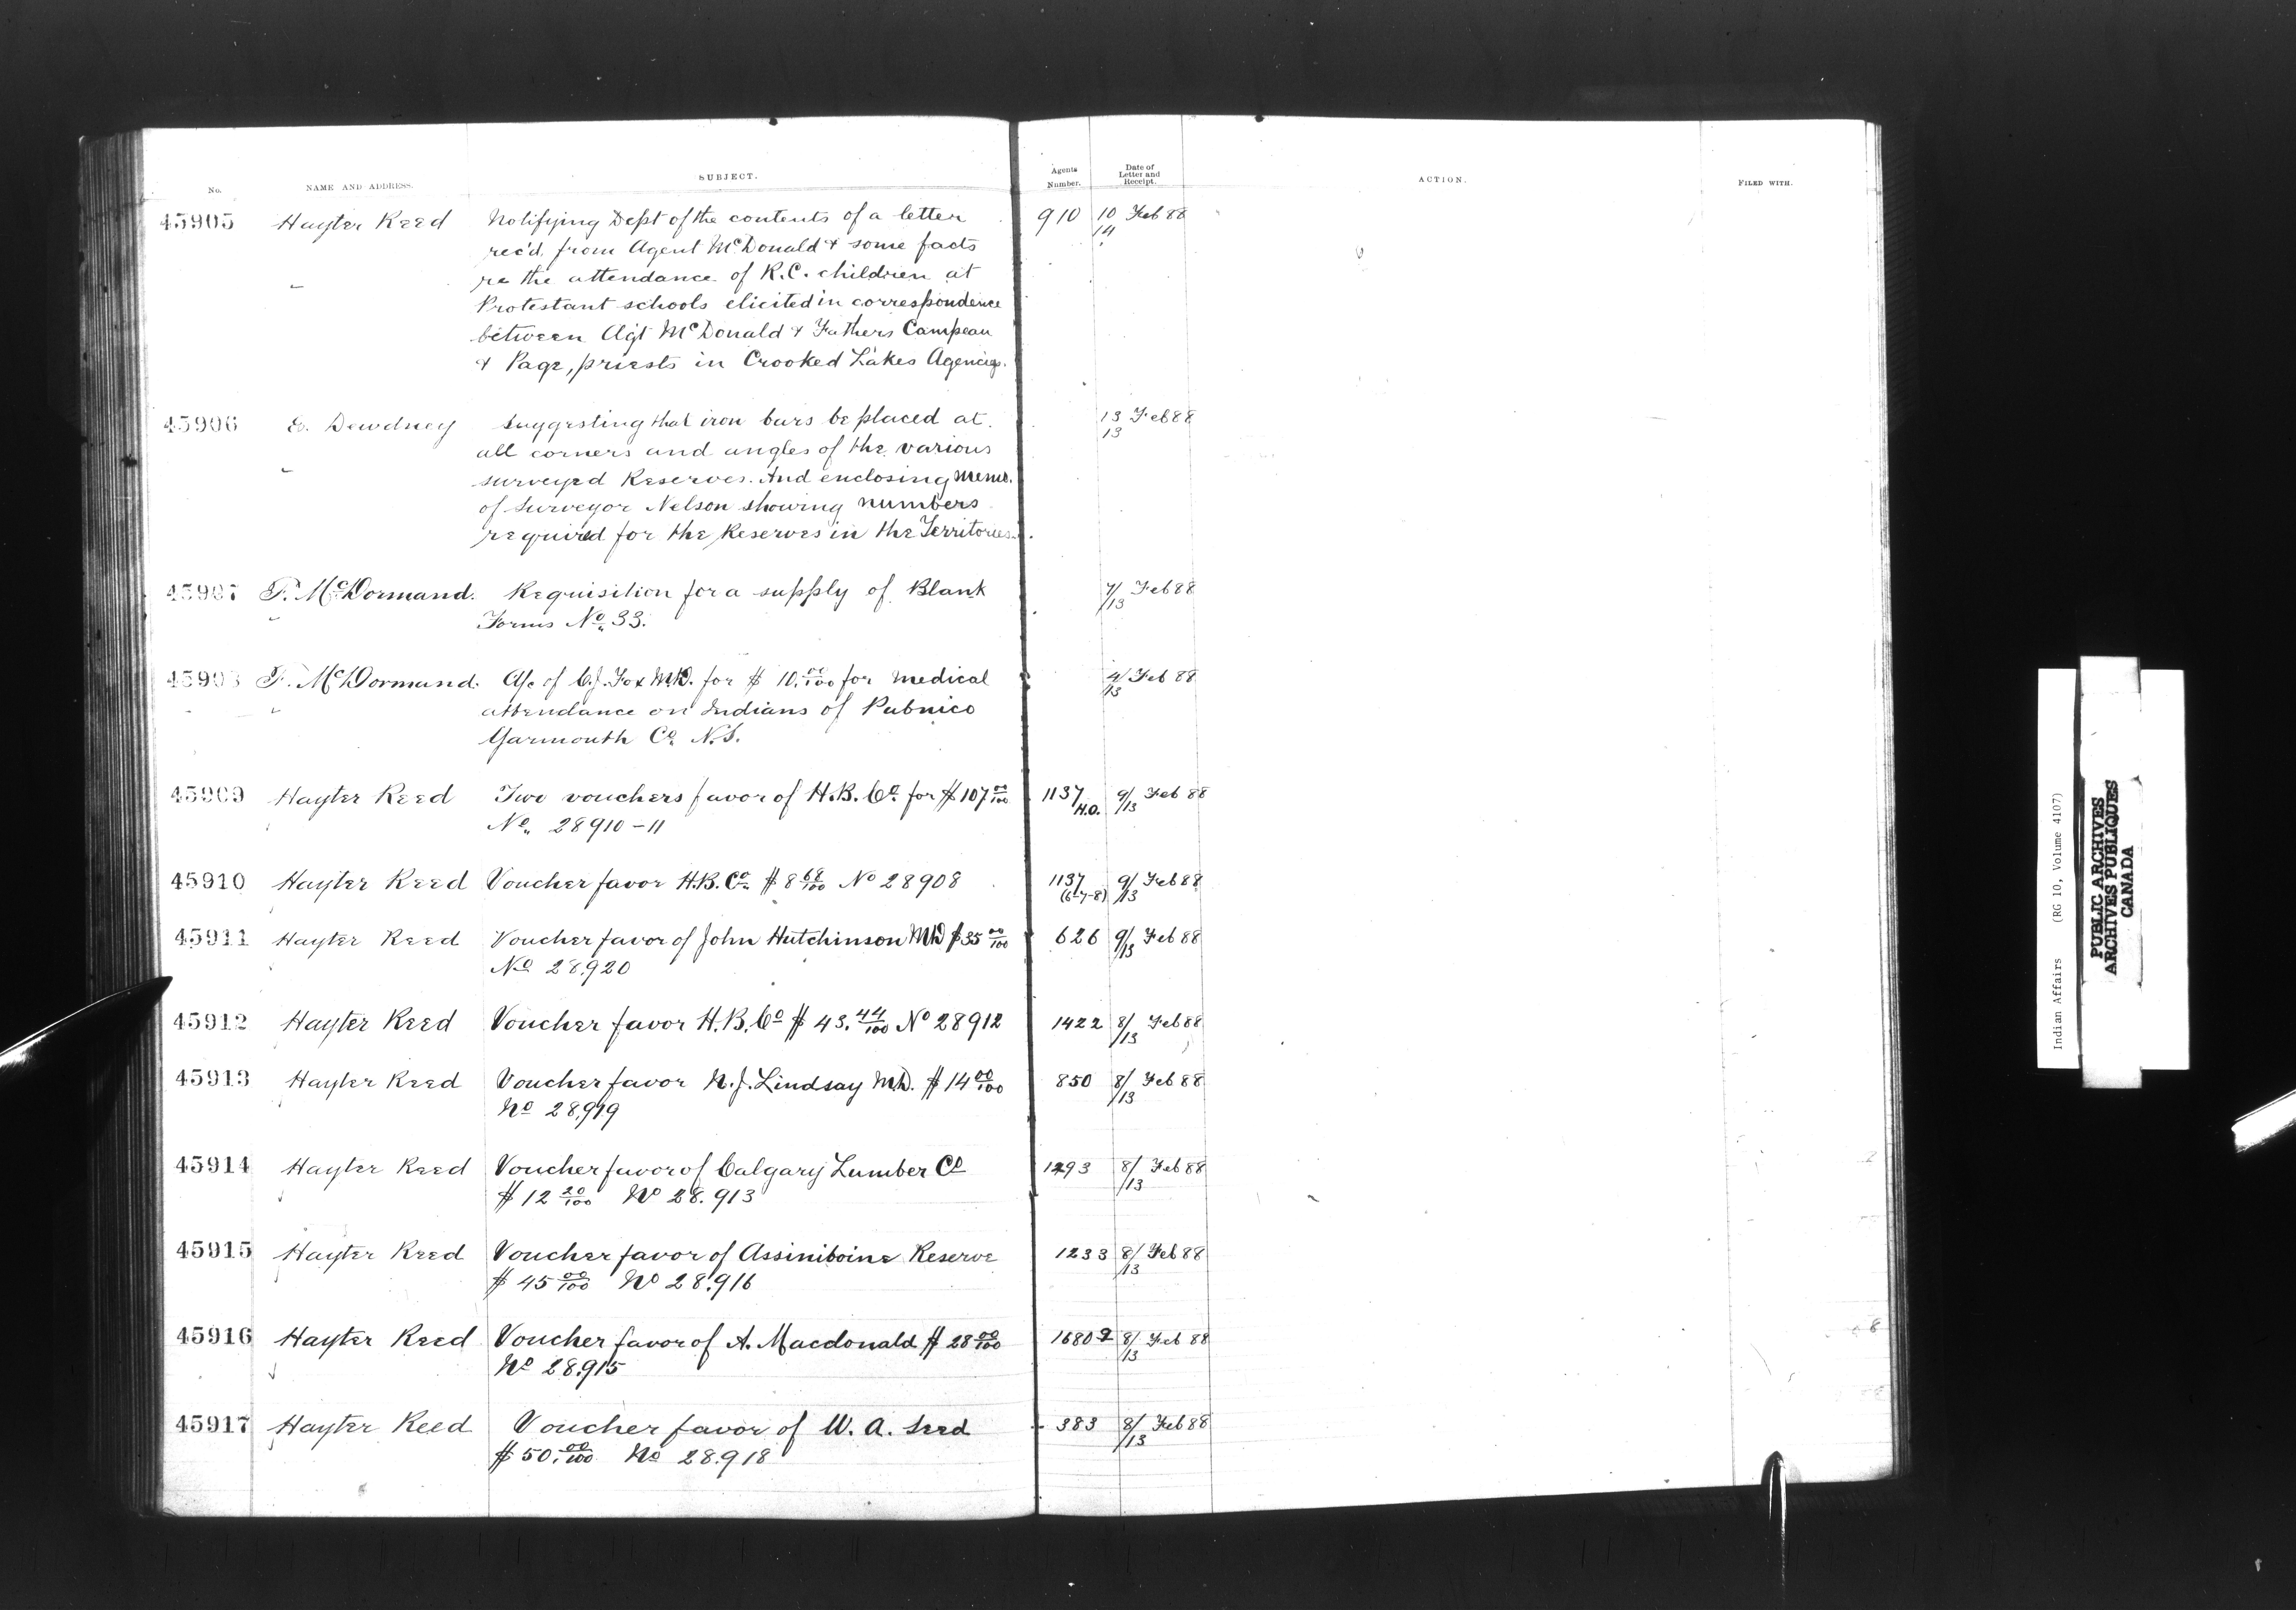 No. NAME AND ADDRESS. SUBJECT. Agents Number. Date of Letter and Receipt. ACTION. FILED WITH.
45905 Hayter Reed Notifying Dept of the contents of a letter 910 10 Feb 88
rec'd. from Agent McDonald & some facts 14
re the attendance of R.C. children at
Protestant schools elicited in correspondence
between Agt McDonald & Fathers Campeau
& Page, priests in Crooked Lakes Agencies.
45906 E. Dewdney Suggesting that iron bars be placed at 13 Feb 88
all corners and angles of the various 13
surveyed Reserves. And enclosing Memo.
of Surveyor Nelson showing numbers
required for the Reserves in the Territories.
45907 F. McDormand. Requisition for a supply of Blank 7/ Feb 88
Forms No. 33. /13
45908 F. McDormand. A/c of C.J. Fox M.D. for $ 10.00/100 for medical 4/ Feb 88
attendance on Indians of Pubnico /13
Yarmouth Co. N.S.
45909 Hayter Reed Two vouchers favor of H.B. Co. for $107 00/100 1137/H.O. 9/ Feb 88
No. 28910-11 /13
45910 Hayter Reed Voucher favor H.B. Co. $8 68/100 No 28908 1137 9/ Feb 88
(6-7-8) /13
45911 Hayter Reed Voucher favor of John Hutchinson MD $35 00/100 626 9/ Feb 88
No 28,920 /13
45912 Hayter Reed Voucher favor H.B. Co $ 43.44/100 No 28912 1422 8/ Feb 88
/13
45913 Hayter Reed Voucher favor N.J. Lindsay M.D. $ 14 00/100 850 8/ Feb 88
No 28,919 /13
45914 Hayter Reed Voucher favor of Calgary Lumber Co 1293 8/ Feb 88
$ 12 20/100 No 28.913 /13
45915 Hayter Reed Voucher favor of Assiniboine Reserve 1233 8/ Feb 88
$ 45 00/100 No 28.916 /13
45916 Hayter Reed Voucher favor of A. Macdonald $ 28 00/100 1680 8/ Feb 88
No 28.915 /13
45917 Hayter Reed Voucher favor of W. A. Seed 383 8/ Feb 88
$ 50.00/100 No 28.918 /13
Indian Affairs (RG 10, Volume 4107)
PUBLIC ARCHIVES
ARCHIVES PUBLIQUES
CANADA